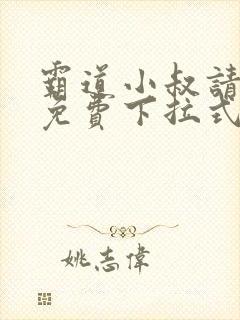 霸道小叔請
免費下拉式
姚志偉